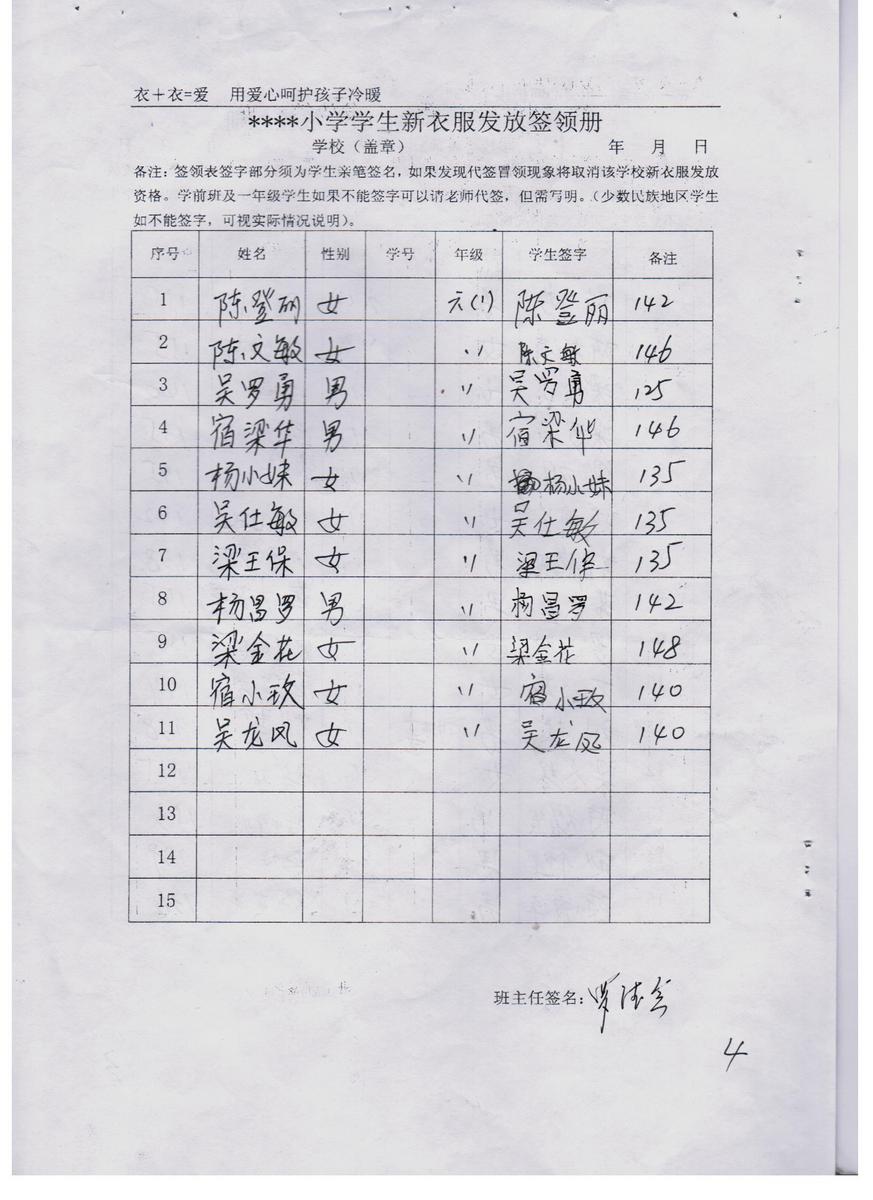 衣+衣=爱 用爱心呵护孩子冷暖
****小学学生新衣服发放签领册
学校(盖章) 年 月 日
备注:签领表签字部分须为学生亲笔签名,如果发现代签冒领现象将取消该学校新衣服发放
资格。学前班及一年级学生如果不能签字可以请老师代签,但需写明。(少数民族地区学生
如不能签字,可视实际情况说明)。
序号 姓名 性别 学号 年级 学生签字 备注
1 陈登丽 女 六(1) 陈登丽 142
2 陈文敏 女 〃 陈文敏 146
3 吴罗勇 男 〃 吴罗勇 125
4 宿梁华 男 〃 宿梁华 146
5 杨小妹 女 〃 杨小妹 135
6 吴仕敏 女 〃 吴仕敏 135
7 梁王保 女 〃 梁王保 135
8 杨昌罗 男 〃 杨昌罗 142
9 梁金花 女 〃 梁金花 148
10 宿小玫 女 〃 宿小玫 140
11 吴龙凤 女 〃 吴龙凤 140
12
13
14
15
班主任签名:
4